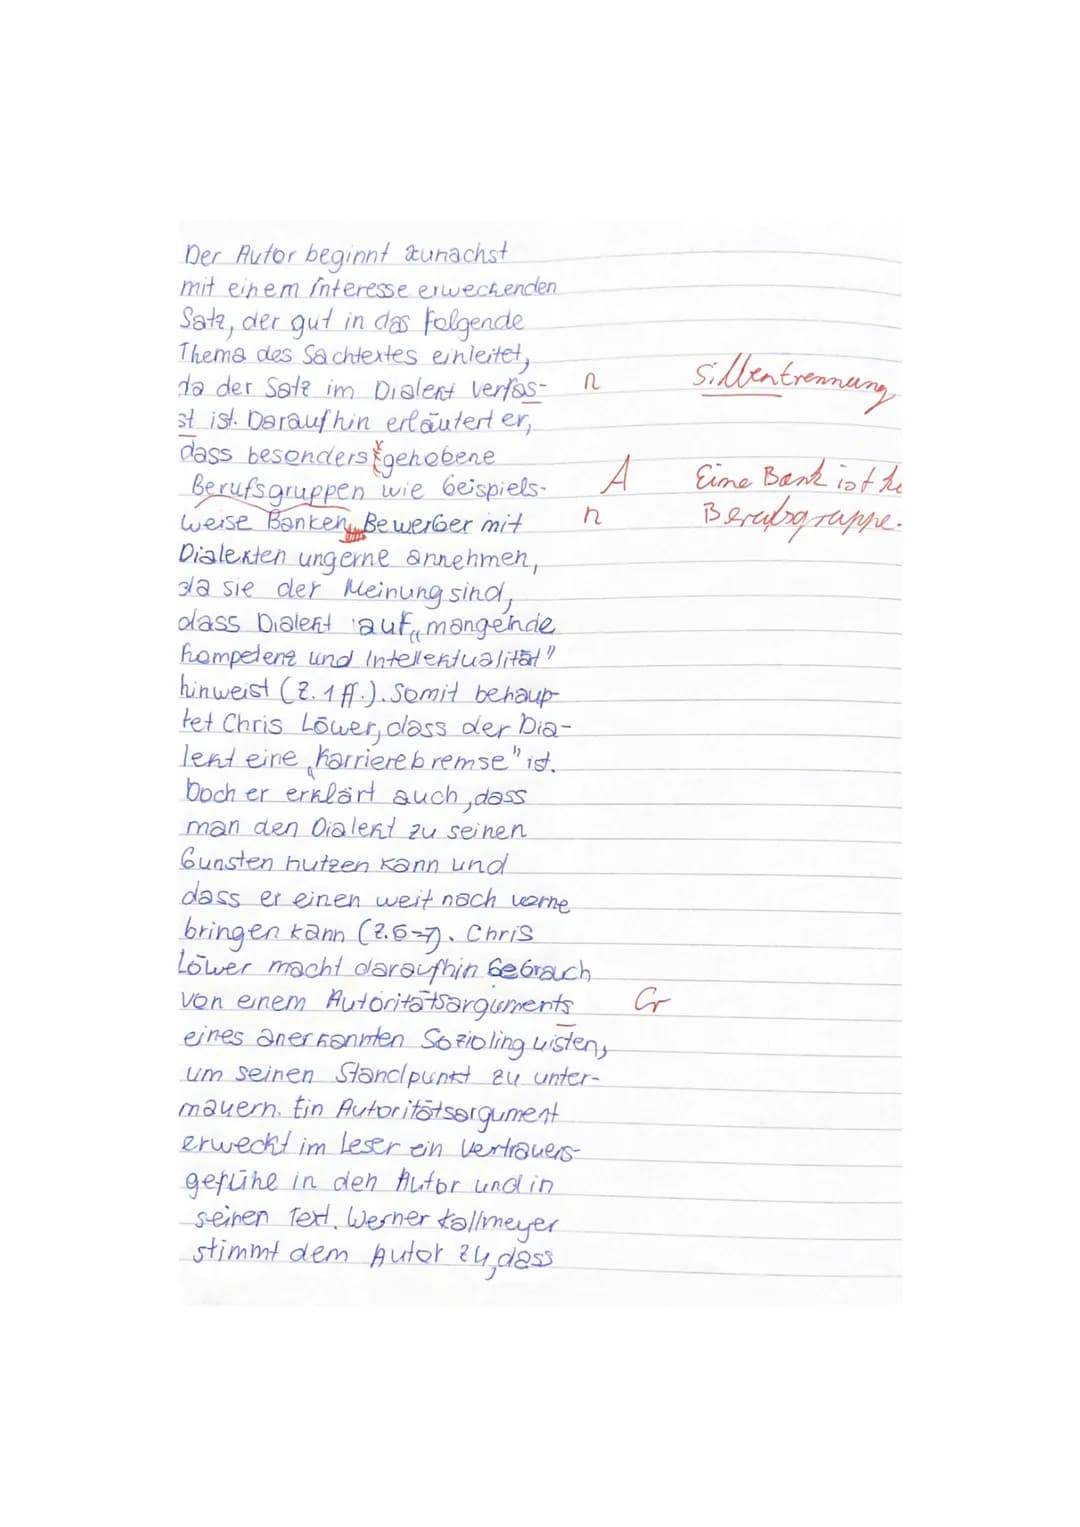 Der Autor beginnt zunächst
mit einem interesse erweckenden
Satz, der gut in das folgende
Thema des Sachtextes einleitet,
da der Satz im Dialekt verfas- n Silbentrennung
st ist. Daraufhin erläutert er,
dass besonders gehobene
Berufsgruppen wie beispiels- A Eine Bank ist
weise Banken Bewerber mit n Berufsgruppe.
Dialekten ungerne annehmen,
da sie der Meinung sind,
dass Dialekt auf „mangelnde
Kompetenz und Intellektualität"
hinweist (Z. 1 ff.). Somit behaup-
tet Chris Löwer, dass der Dia-
lekt eine „Karrierebremse" ist.
Doch er erklärt auch, dass
man den Dialekt zu seinen
Gunsten nutzen kann und
dass er einen weit nach vorne
bringen kann (Z.6-7). Chris
Löwer macht daraufhin Gebrauch
von einem Autoritätsarguments Gr
eines anerkannten Soziolinguisten,
um seinen Standpunkt zu unter-
mauern. Ein Autoritätsargument
erweckt im Leser ein Vertrauens-
gefühle in den Autor und in
seinen Text. Werner Kallmeyer
stimmt dem Autor zu, dass